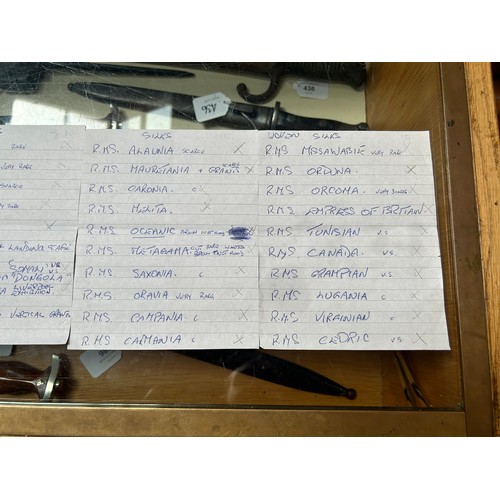 436
436
SILKS
R.M.S. ALAUNIA SCARCE X
R.M.S. MAURETANIA + GRANIS SCARCE X
R.M.S. CARONIA. C X
R.M.S. MELITA. X
R.M.S. OCEANIC
R.M.S. METAGAMA. X
R.M.S SAXONIA. C X
R.M.S ORAVIA VERY RARE X
R.M.S. CAMPANIA C X
R.M.S. CARMANIA C X
WOVEN SILKS
R.M.S MISSANABIE VERY RARE X
R.M.S. ORDUNA. X
R.M.S. ORCOMA. VERY SCARCE X
R.M.S EMPRESS OF BRITAIN X
R.M.S TUNISIAN V.S X
R.M.S CANADA. V.S. X
R.M.S GRAMPIAN V.S X
R.M.S LUGANIA. C X
R.M.S VIRGINIAN C X
R.M.S CEDRIC V.S X
RARE
VERY RARE
SCARCE
X
LANDING SCARCE
DONGOLA
VERTICAL